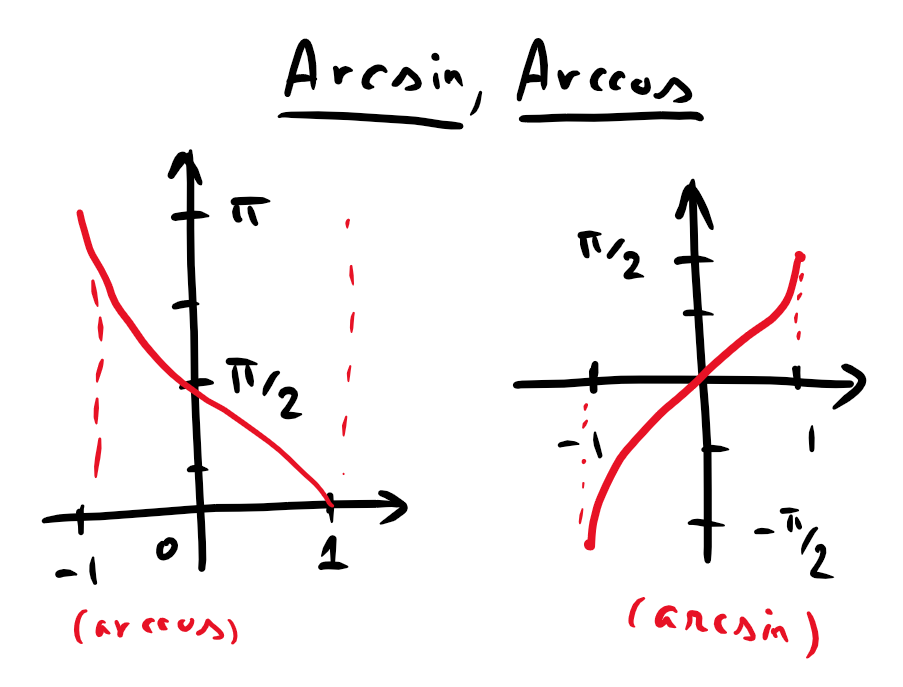 Arcsin, Arccos
π
π/2
-1
0
1
(arccos)
π/2
-1
1
-π/2
(arcsin)